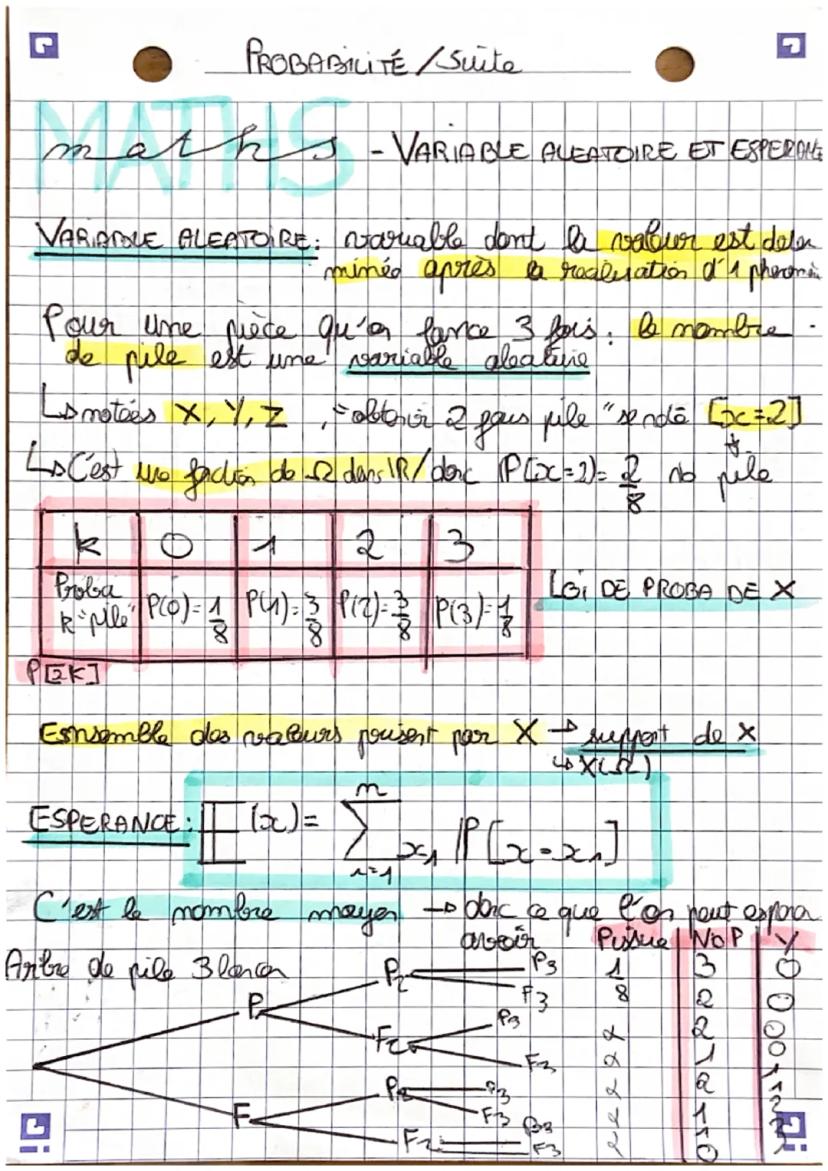 PROBABILITÉ / Suite
MATHS
maths - VARIABLE ALEATOIRE ET ESPERANCE
VARIABLE ALEATOIRE: variable dont la valeur est deter
minée après la realisation d'1 phenomè
Pour une pièce qu'on lance 3 fois: le nombre
de pile est une variable aleatoire
↳ notées X, Y, Z , "obtenir 2 fois pile" se note [x=2]
↳ C'est une fonction de Ω dans ℝ / donc P(x=2)= 2/8 nb pile
k 0 1 2 3
Proba k "pile" P(0)=1/8 P(1)=3/8 P(2)=3/8 P(3)=1/8
LOI DE PROBA DE X
Ensemble des valeurs prisent par X → support de X
↳ X(Ω)
ESPERANCE: E(x) = ∑ x₁ P[x=x₁]
C'est le nombre moyen → donc ce que l'on peut esperer
avoir
Arbre de pile 3 lancer
P P₂ P3
F3
F₂ P3
F3
F P₂ P3
F3
F₂ P3
F3
Issue Nb P Y
1/8 3 0
2 0
2 0
1 0
2 1
1
1
0